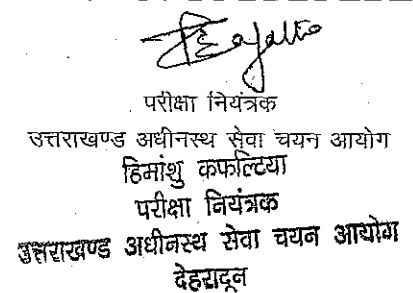 परीक्षा नियंत्रक
उत्तराखण्ड अधीनस्थ सेवा चयन आयोग
हिमांशु कफल्टिया
परीक्षा नियंत्रक
उत्तराखण्ड अधीनस्थ सेवा चयन आयोग
देहरादून